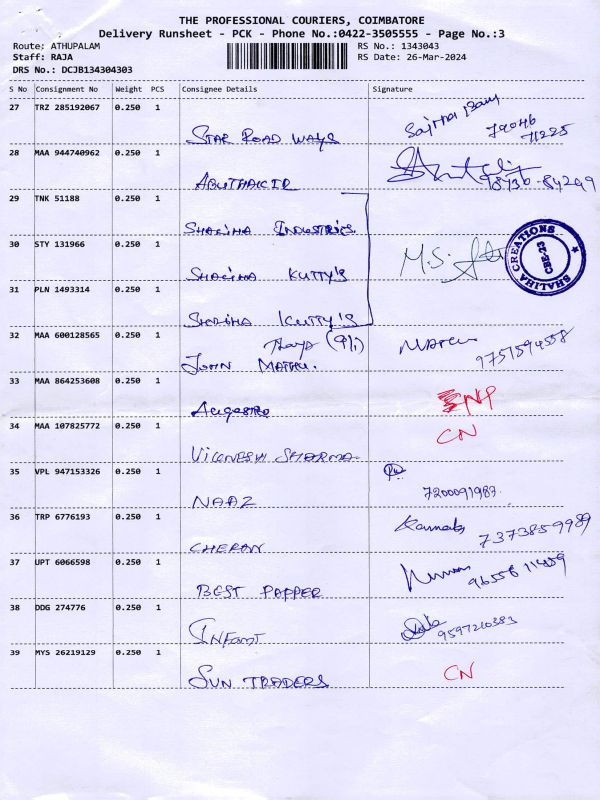 THE PROFESSIONAL COURIERS, COIMBATORE
Delivery Runsheet - PCK - Phone No.:0422-3505555 - Page No.:3
Route: ATHUPALAM
RS No.: 1343043
Staff: RAJA
RS Date: 26-Mar-2024
DRS No.: DCJB134304303
S No Consignment No Weight PCS Consignee Details Signature
27 TRZ 285192067 0.250 1 STAR ROAD WAYS
79046
71225
28 MAA 944740962 0.250 1 ABUTHAKIR 98736-84299
29 TNK 51188 0.250 1 SHALIHA INDUSTRIES
30 STY 131966 0.250 1 SHALIHA KUTTY'S M.S.
SHALIHA CREATIONS
CBE-23
31 PLN 1493314 0.250 1 SHALIHA KUTTY'S
32 MAA 600128565 0.250 1 JOHN MATHU. 9751594558
33 MAA 864253608 0.250 1 NP
34 MAA 107825772 0.250 1 VIGNESH SHARMA CN
35 VPL 947153326 0.250 1 NAAZ 7200091987
36 TRP 6776193 0.250 1 CHERAN 7373859989
37 UPT 6066598 0.250 1 BEST PAPPER
38 DDG 274776 0.250 1 INFANT 9597210383
39 MYS 26219129 0.250 1 SUN TRADERS CN